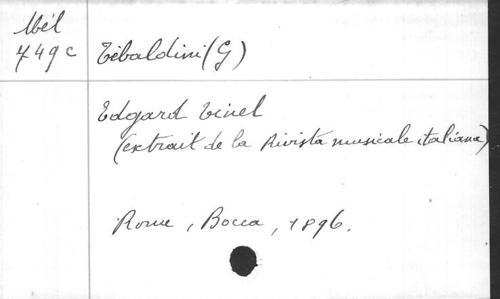 Mél
749c
Tebaldini (G)
Edgard Tinel
(extrait de la Rivista musicale italiana)
Rome, Bocca, 1896.